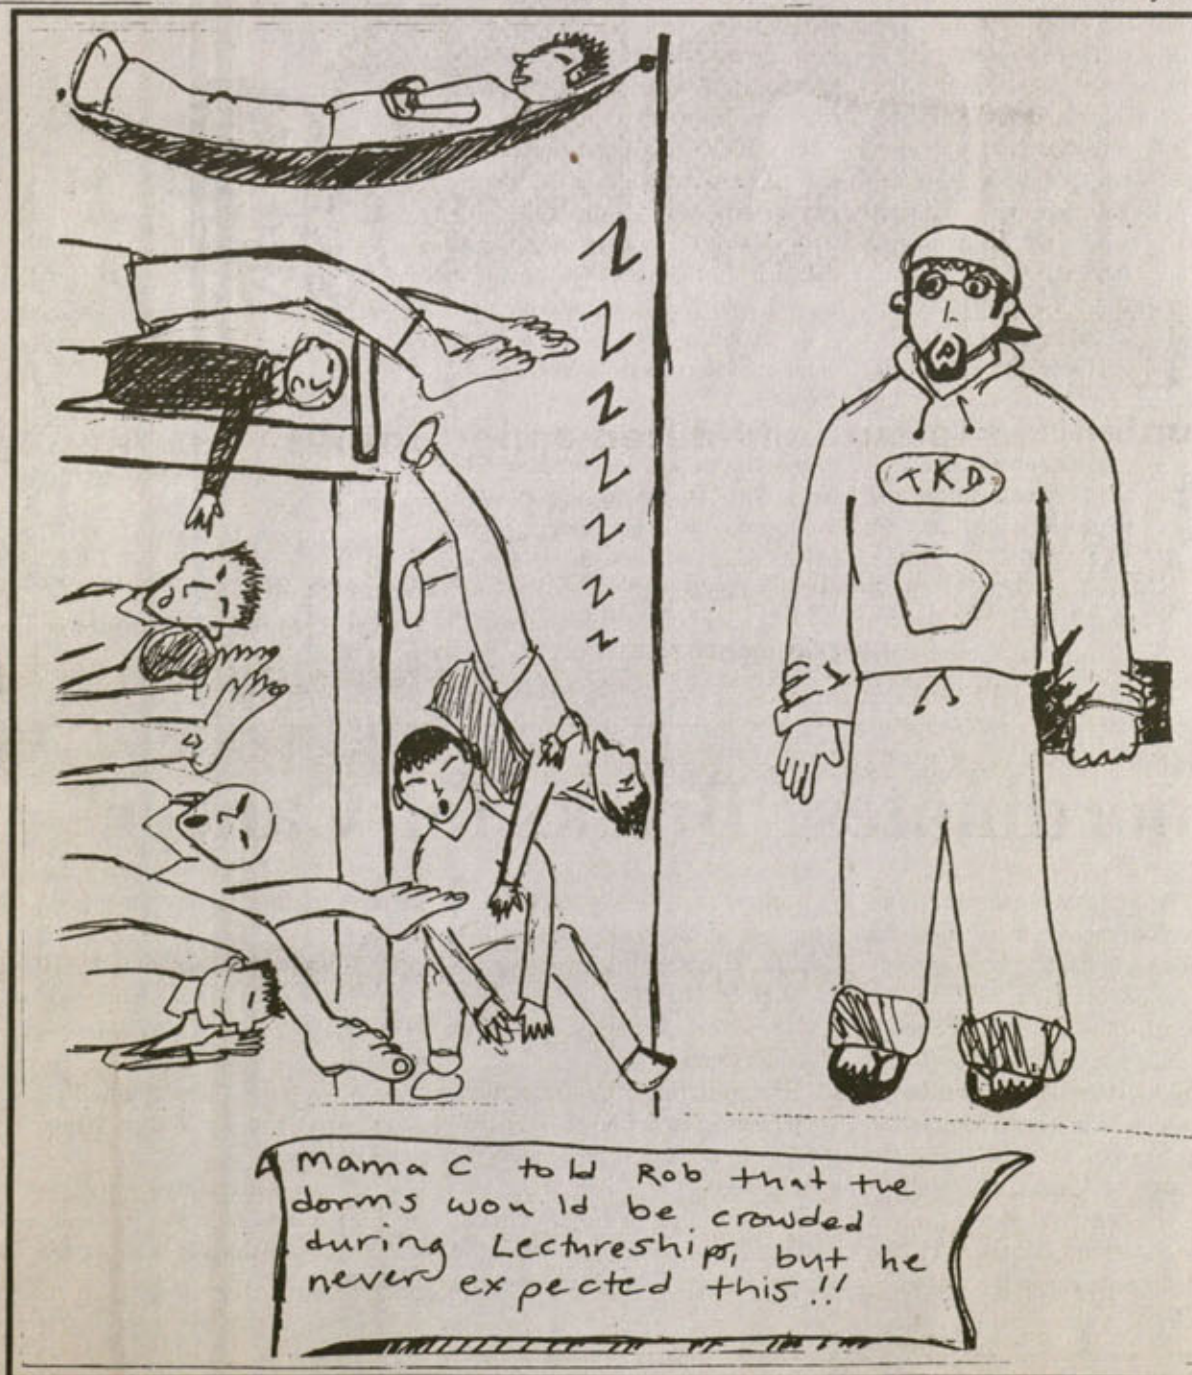 Z
Z
Z
Z
Z
Z
Z
TKD
Mama C told Rob that the
dorms would be crowded
during Lectureships, but he
never expected this!!